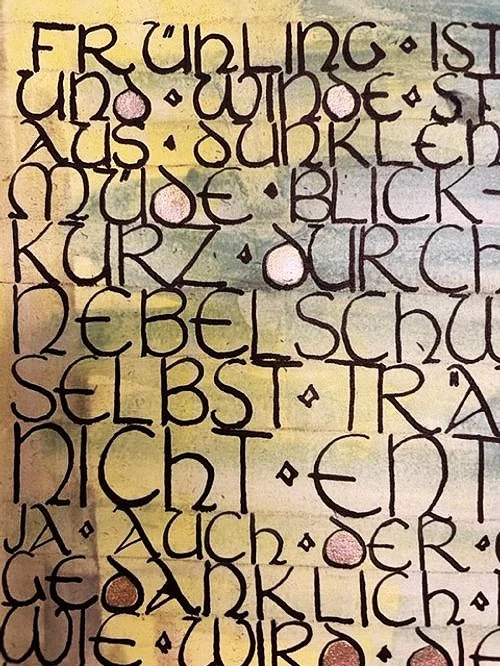 FRÜHLING ⋄ IST
UND ⋄ WINDE ⋄ ST
AUS ⋄ DUNKLEN
MÜDE ⋄ BLICK-
KURZ ⋄ DURCH
NEBELSCHW
SELBST ⋄ TRÄ
NICHT ⋄ ENT
JA ⋄ AUCH ⋄ DER ⋄
GEDANKLICH ⋄
WIE ⋄ WIRD ⋄ DIE